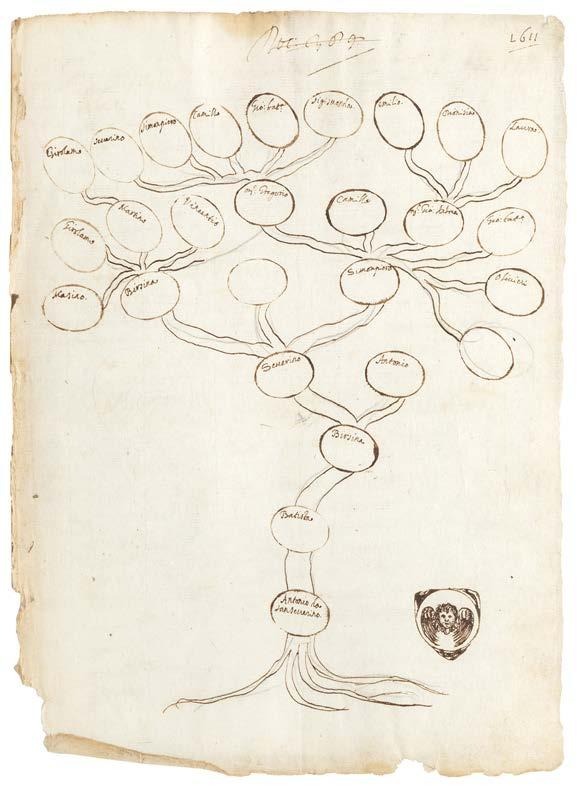 L611
Girolamo
Severino
Simonpiero
Camillo
Gio: batt
Sigismondo
Emilio
Dionisio
Lauro
Marino
Vincentio
mſ: Gregorio
Camillo
Gio: batt
Girolamo
Masino.
Birsina
Simonpiero
Oliuieri
Seuerino
Antonio
Birsina
Batista
Antonio da
Sanseuerino.